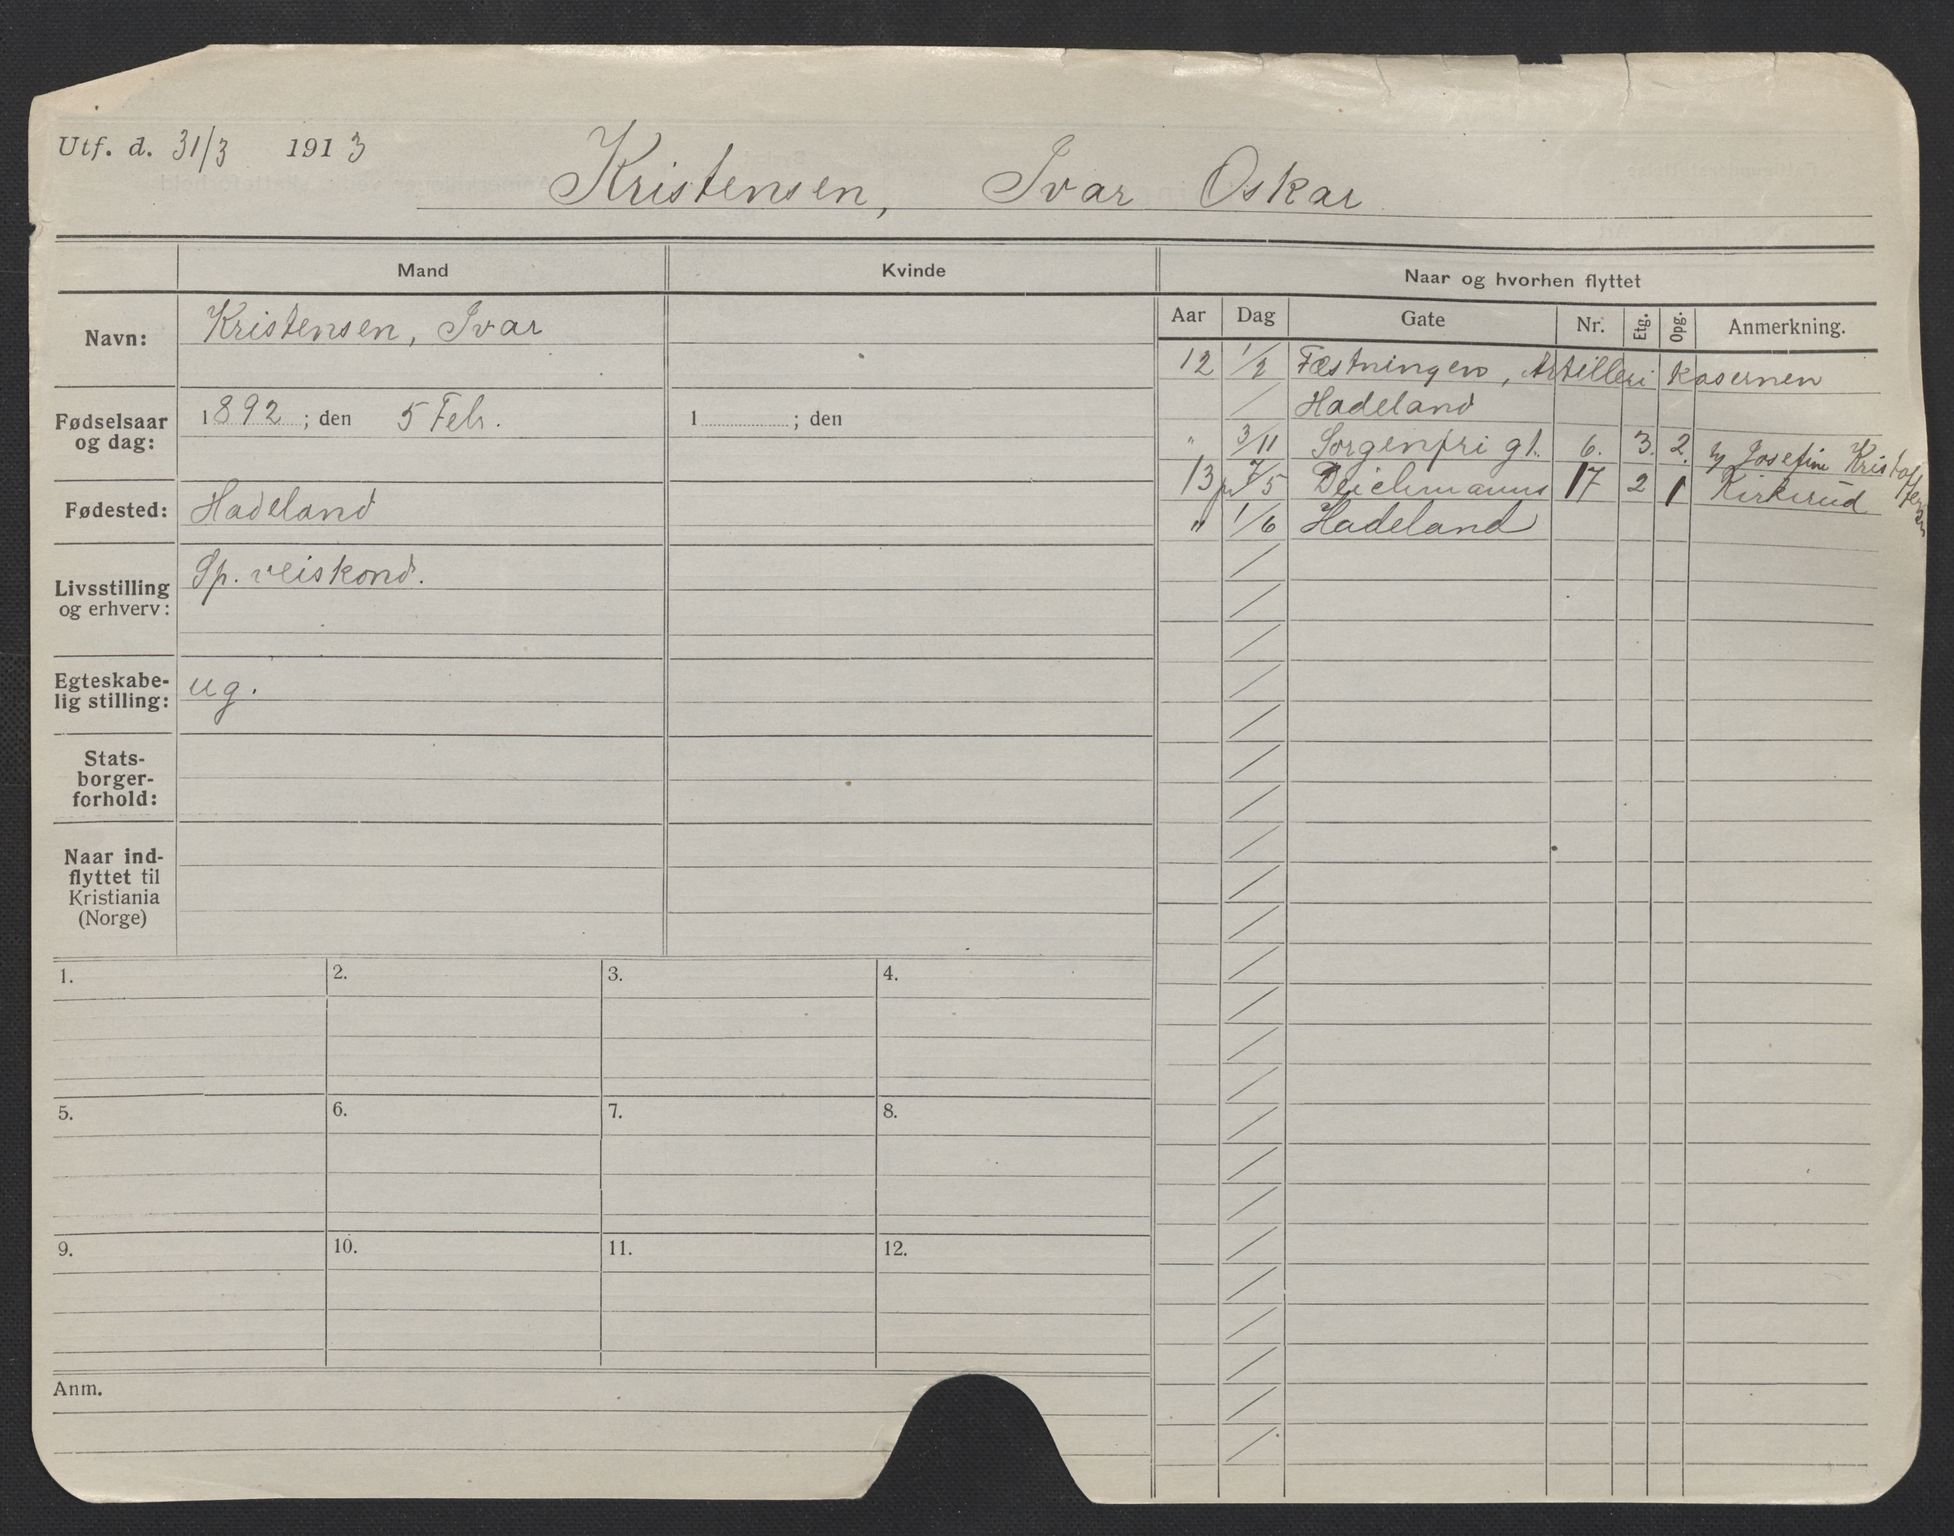 Utf. d. 31/3 1913
Kristensen, Ivar Oskar
Mand
Kvinde
Naar og hvorhen flyttet
Aar Dag Gate Nr. Etg. Opg. Anmerkning.
Navn: Kristensen, Ivar
Fødselsaar og dag: 1892; den 5 Feb. 1 ; den
Fødested: Hadeland
Livsstilling og erhverv: Sp. veiskond.
Egteskabe-
lig stilling: ug.
Stats-
borger-
forhold:
Naar ind-
flyttet til
Kristiania
(Norge)
12 1/2 Fæstningen, Artilleri kasernen
/ Hadeland
" 3/11 Sorgenfri gt. 6. 3. 2. Josefine Kristoffersen
13 7/5 Deichmanns 17 2 1 Kirkerud
" 1/6 Hadeland
1. 2. 3. 4.
5. 6. 7. 8.
9. 10. 11. 12.
Anm.